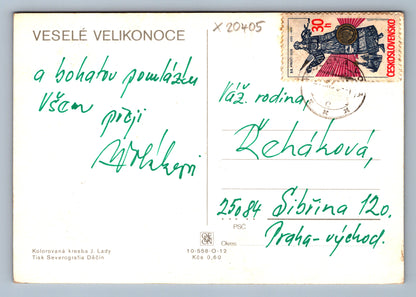 X 20405
VESELÉ VELIKONOCE
30h
ČESKOSLOVENSKO
a bohatou pomlázku
Všem
přeji
Váž. rodina,
Řeháková,
25084 Sibřina 120.
PSČ
Praha-východ.
Okres
Kolorovaná kresba J. Lady
Tisk Severografia Děčín
10-558-O-12
Kčs 0,60